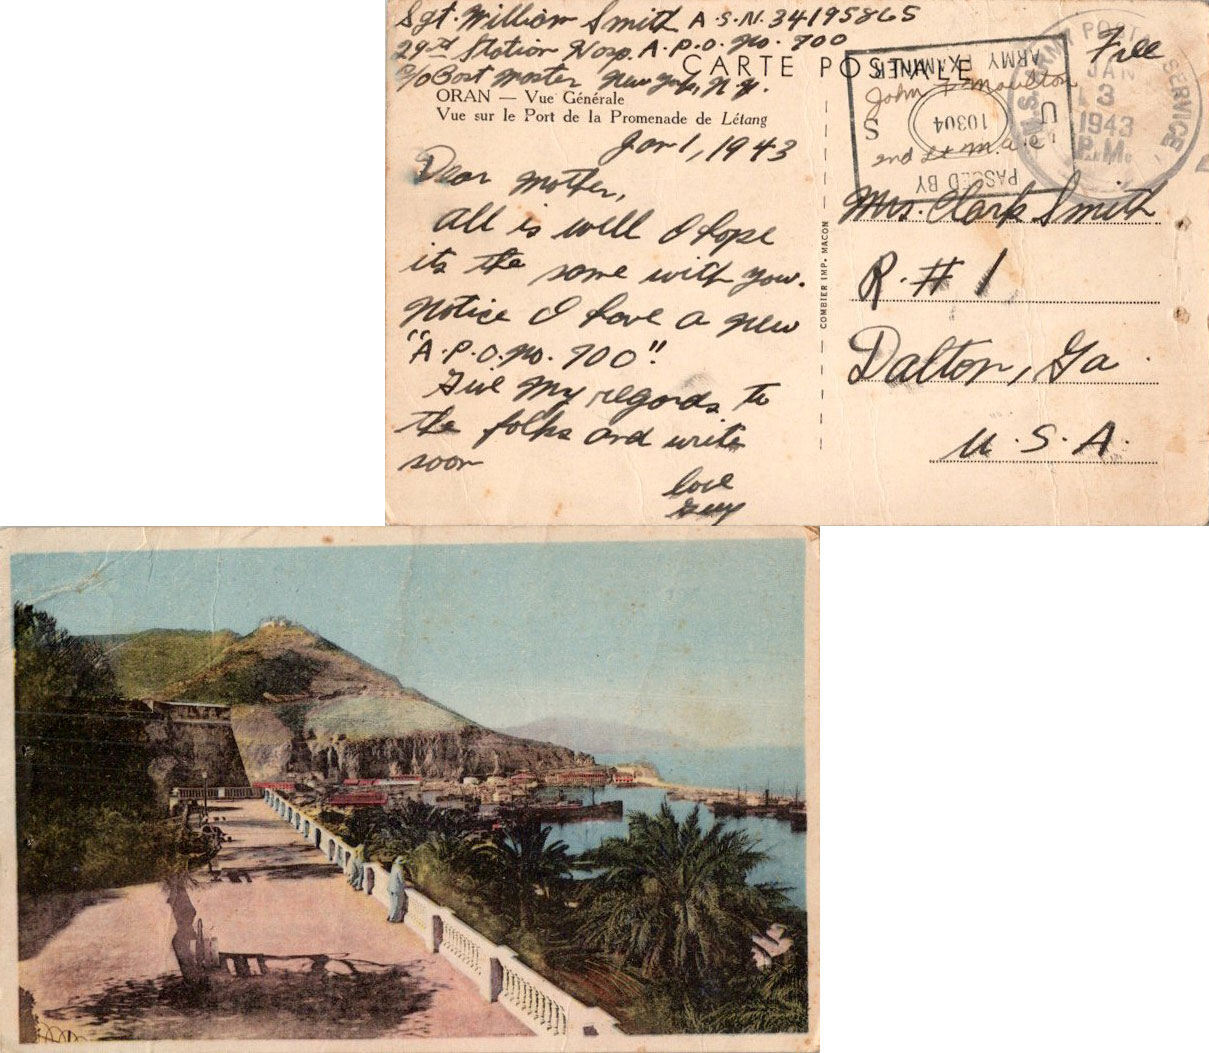 Sgt. William Smith A.S.N. 34195865
29th Station Hosp. A.P.O. No. 700
c/o Post Master New York, N.Y.
CARTE POSTALE
ORAN — Vue Générale
Vue sur le Port de la Promenade de Létang
Jan 1, 1943
Dear Mother,
All is well I hope
its the same with you.
Notice I have a new
"A.P.O. No. 700"
Give my regards to
the folks and write
soon
love
COMBIER IMP. MACON
Free
U.S. ARMY POSTAL SERVICE
JAN
3
1943
P.M.
PASSED BY
U S
10304
ARMY EXAMINER
John F. Moulton
2nd Lt. M.A.C.
Mrs. Clark Smith
R. # 1
Dalton, Ga
U.S.A.